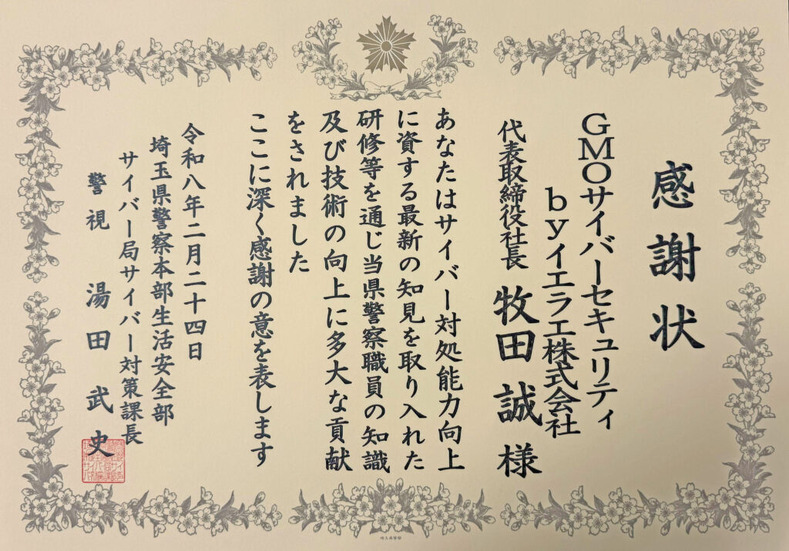 感謝状
GMOサイバーセキュリティ
byイエラエ株式会社
代表取締役社長
牧田誠様
あなたはサイバー対処能力向上
に資する最新の知見を取り入れた
研修等を通じ当県警察職員の知識
及び技術の向上に多大な貢献
をされました
ここに深く感謝の意を表します
令和八年二月二十四日
埼玉県警察本部生活安全部
サイバー局サイバー対策課長
警視 湯田武史